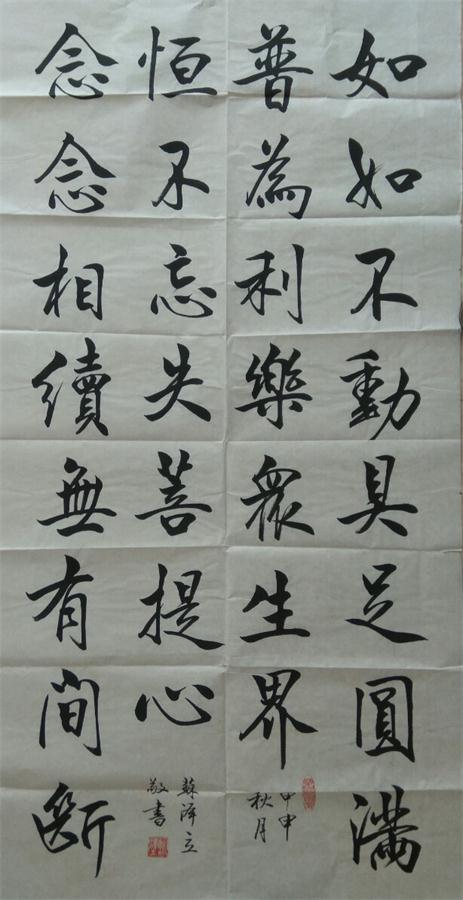 如如不動具足圓滿
普為利樂眾生界
甲申
秋月
恒不忘失菩提心
蘇泽立
敬書
念念相續無有間斷